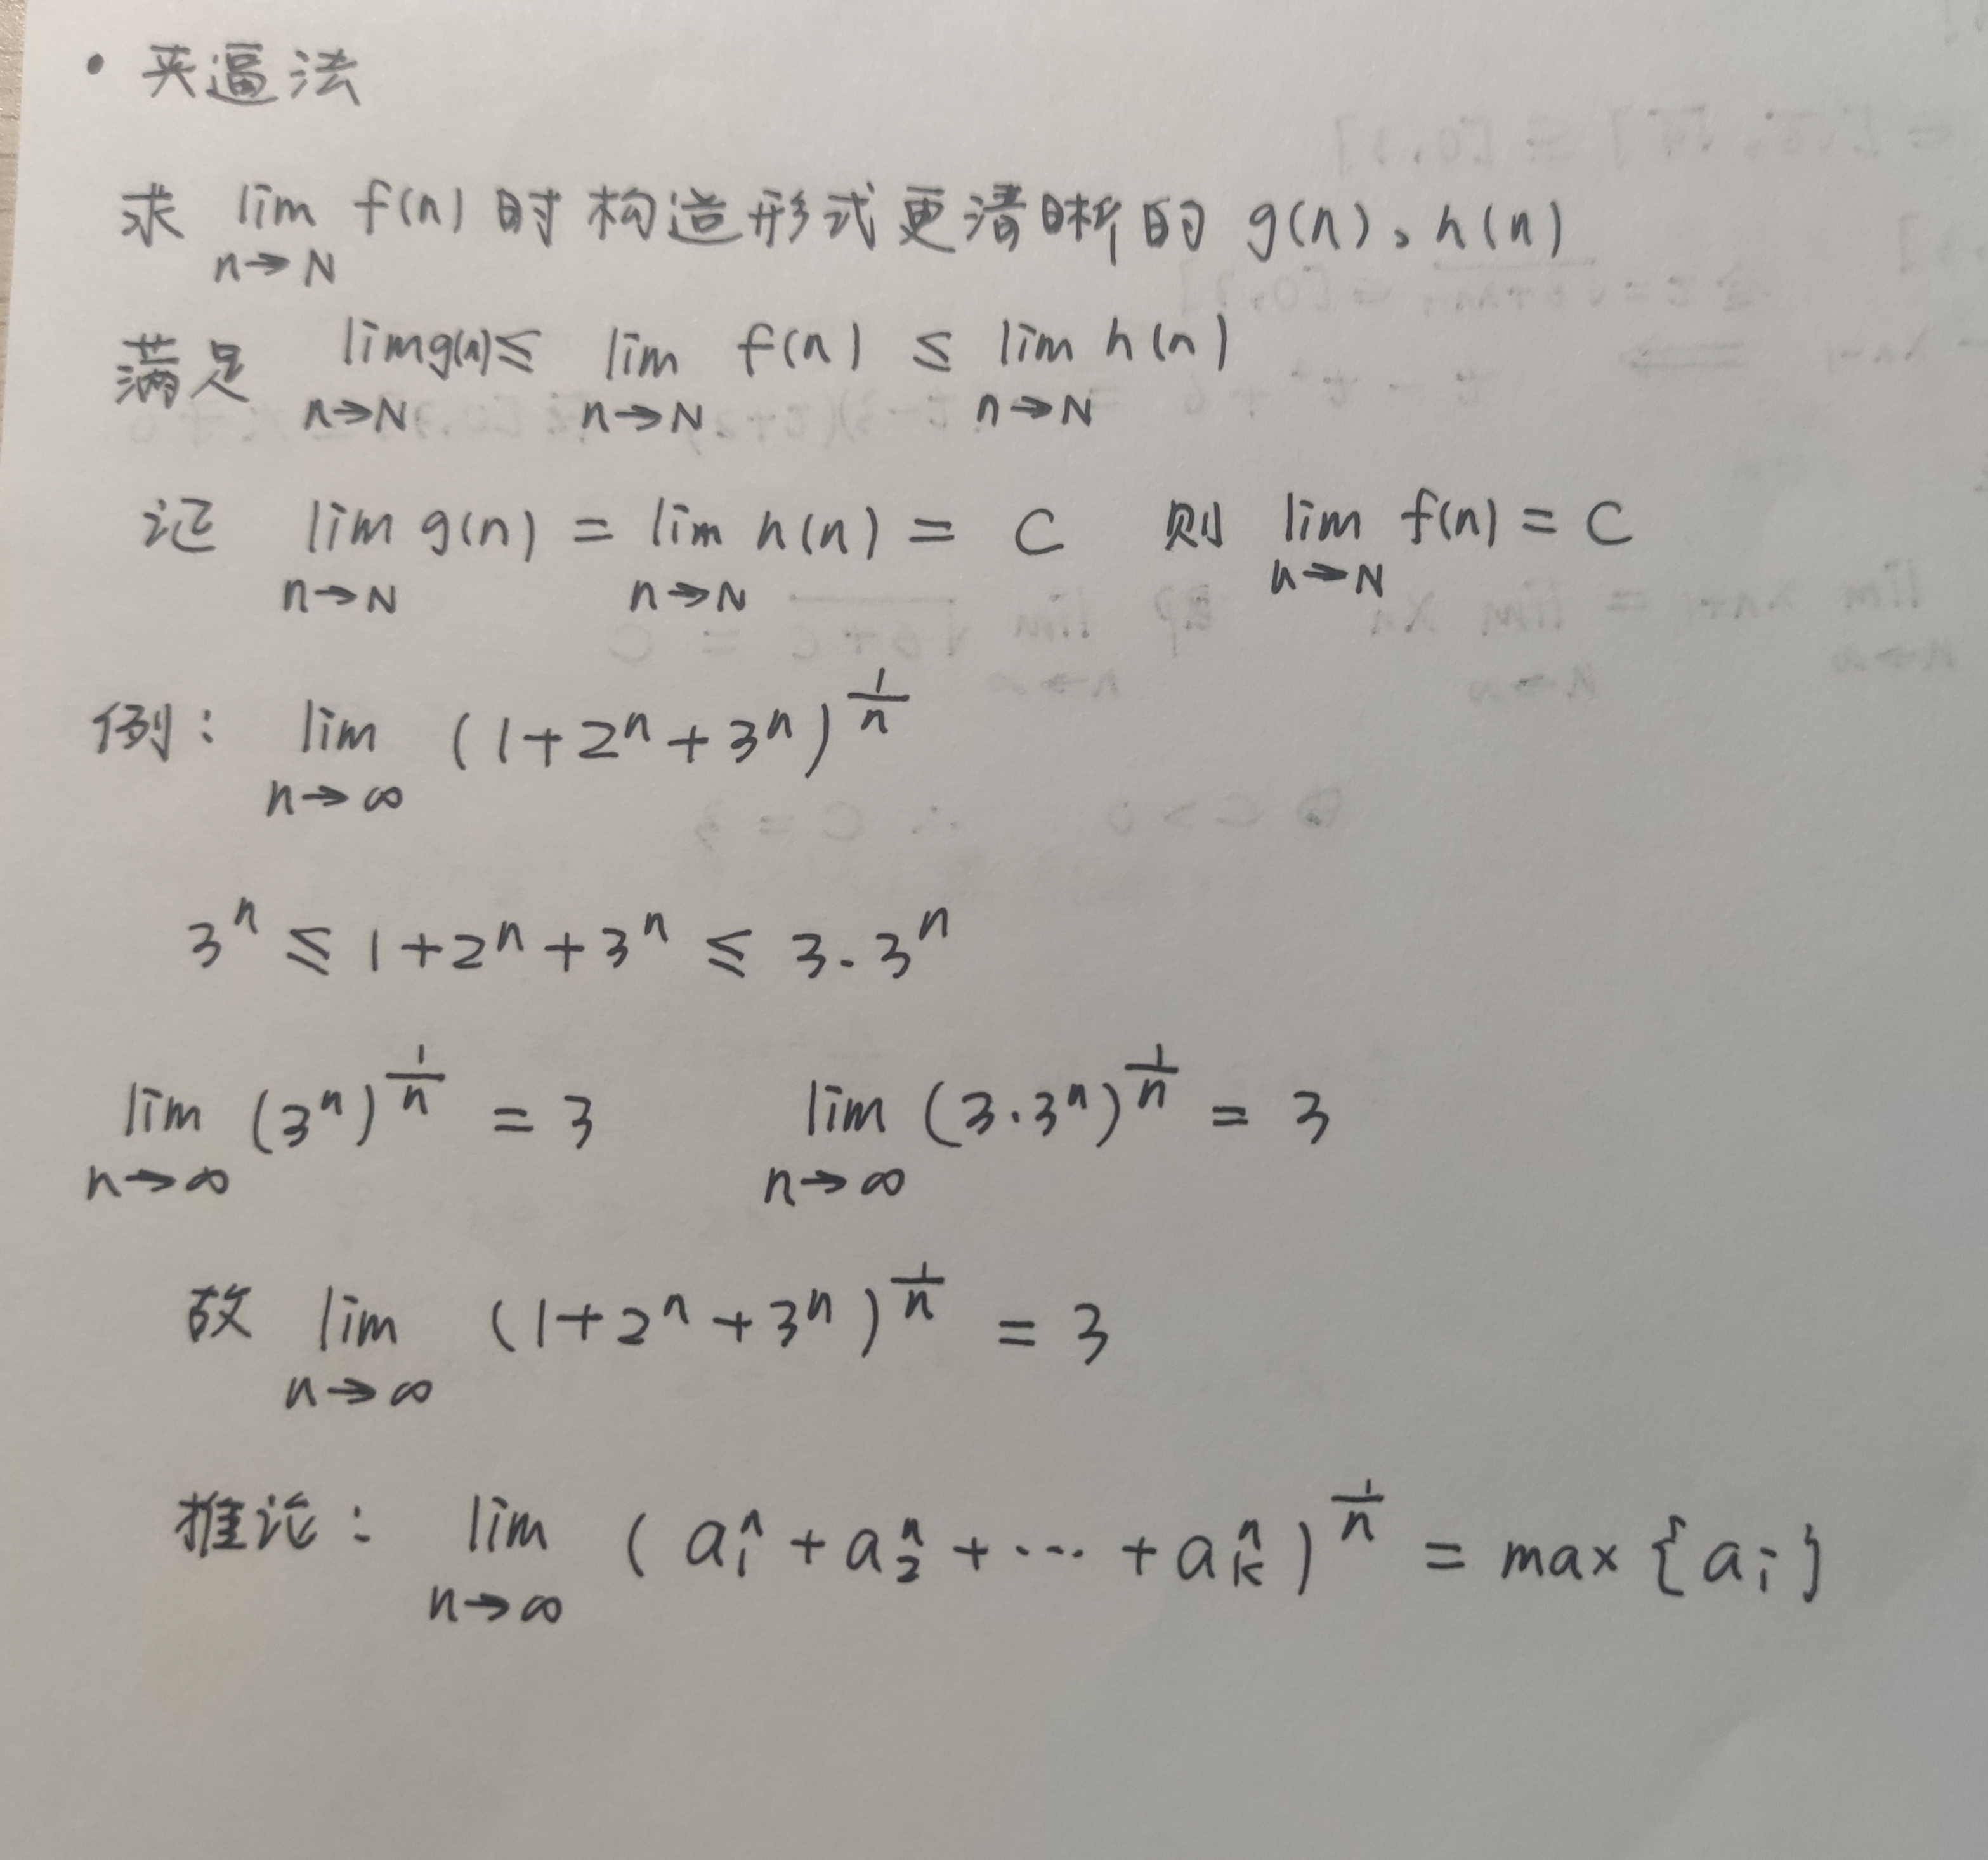 • 夹逼法
求 lim_{n→N} f(n) 时构造形式更清晰的 g(n)、h(n)
满足 lim_{n→N} g(n) ≤ lim_{n→N} f(n) ≤ lim_{n→N} h(n)
记 lim_{n→N} g(n) = lim_{n→N} h(n) = C 则 lim_{n→N} f(n) = C
例: lim_{n→∞} (1+2^n+3^n)^{1/n}
3^n ≤ 1+2^n+3^n ≤ 3·3^n
lim_{n→∞} (3^n)^{1/n} = 3 lim_{n→∞} (3·3^n)^{1/n} = 3
故 lim_{n→∞} (1+2^n+3^n)^{1/n} = 3
推论: lim_{n→∞} (a_1^n + a_2^n + ··· + a_k^n)^{1/n} = max{a_i}